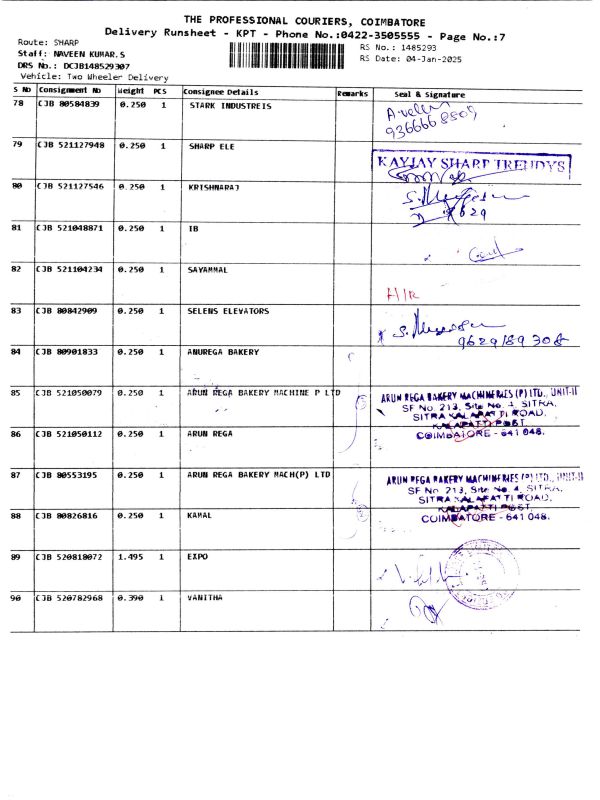 THE PROFESSIONAL COURIERS, COIMBATORE
Delivery Runsheet - KPT - Phone No.:0422-3505555 - Page No.:7
Route: SHARP
Staff: NAVEEN KUMAR.S
DRS No.: DCJB148529307
Vehicle: Two Wheeler Delivery
RS No.: 1485293
RS Date: 04-Jan-2025
S No Consignment No Weight PCS Consignee Details Remarks Seal & Signature
78 CJB 80584839 0.250 1 STARK INDUSTREIS
79 CJB 521127948 0.250 1 SHARP ELE
KAYJAY SHARP TRENDYS
80 CJB 521127546 0.250 1 KRISHNARAJ
9629
81 CJB 521048871 0.250 1 IB
82 CJB 521104234 0.250 1 SAYAMMAL
83 CJB 80842909 0.250 1 SELENS ELEVATORS
9629189 308
84 CJB 80901833 0.250 1 ANUREGA BAKERY
85 CJB 521050079 0.250 1 ARUN REGA BAKERY MACHINE P LTD
ARUN REGA BAKERY MACHINERIES (P) LTD., UNIT-II
SF No. 213, Site No. 4, SITRA,
SITRA KALAPATTI ROAD,
KALAPATTI POST
COIMBATORE - 641 048.
86 CJB 521050112 0.250 1 ARUN REGA
87 CJB 80553195 0.250 1 ARUN REGA BAKERY MACH(P) LTD
ARUN REGA BAKERY MACHINERIES (P) LTD., UNIT-II
SF No. 213, Site No. 4, SITRA,
SITRA KALAPATTI ROAD,
KALAPATTI POST,
COIMBATORE - 641 048.
88 CJB 80826816 0.250 1 KAMAL
89 CJB 520818072 1.495 1 EXPO
90 CJB 520782968 0.390 1 VANITHA